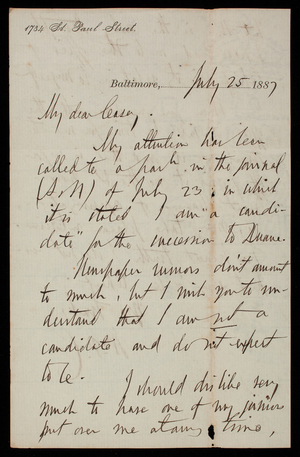 1734 St. Paul Street.
Baltimore, July 25 1887
My dear Casey,
My attention has been
called to a par'h in the Journal
(A & N) of July 23, in which
it is stated I am "a candi-
date" for the succession to Duane.
Newspaper rumors don't amount
to much, but I wish you to un-
derstand that I am not a
candidate and do not expect
to be. I should dislike very
much to have one of my juniors
put over me at any time,